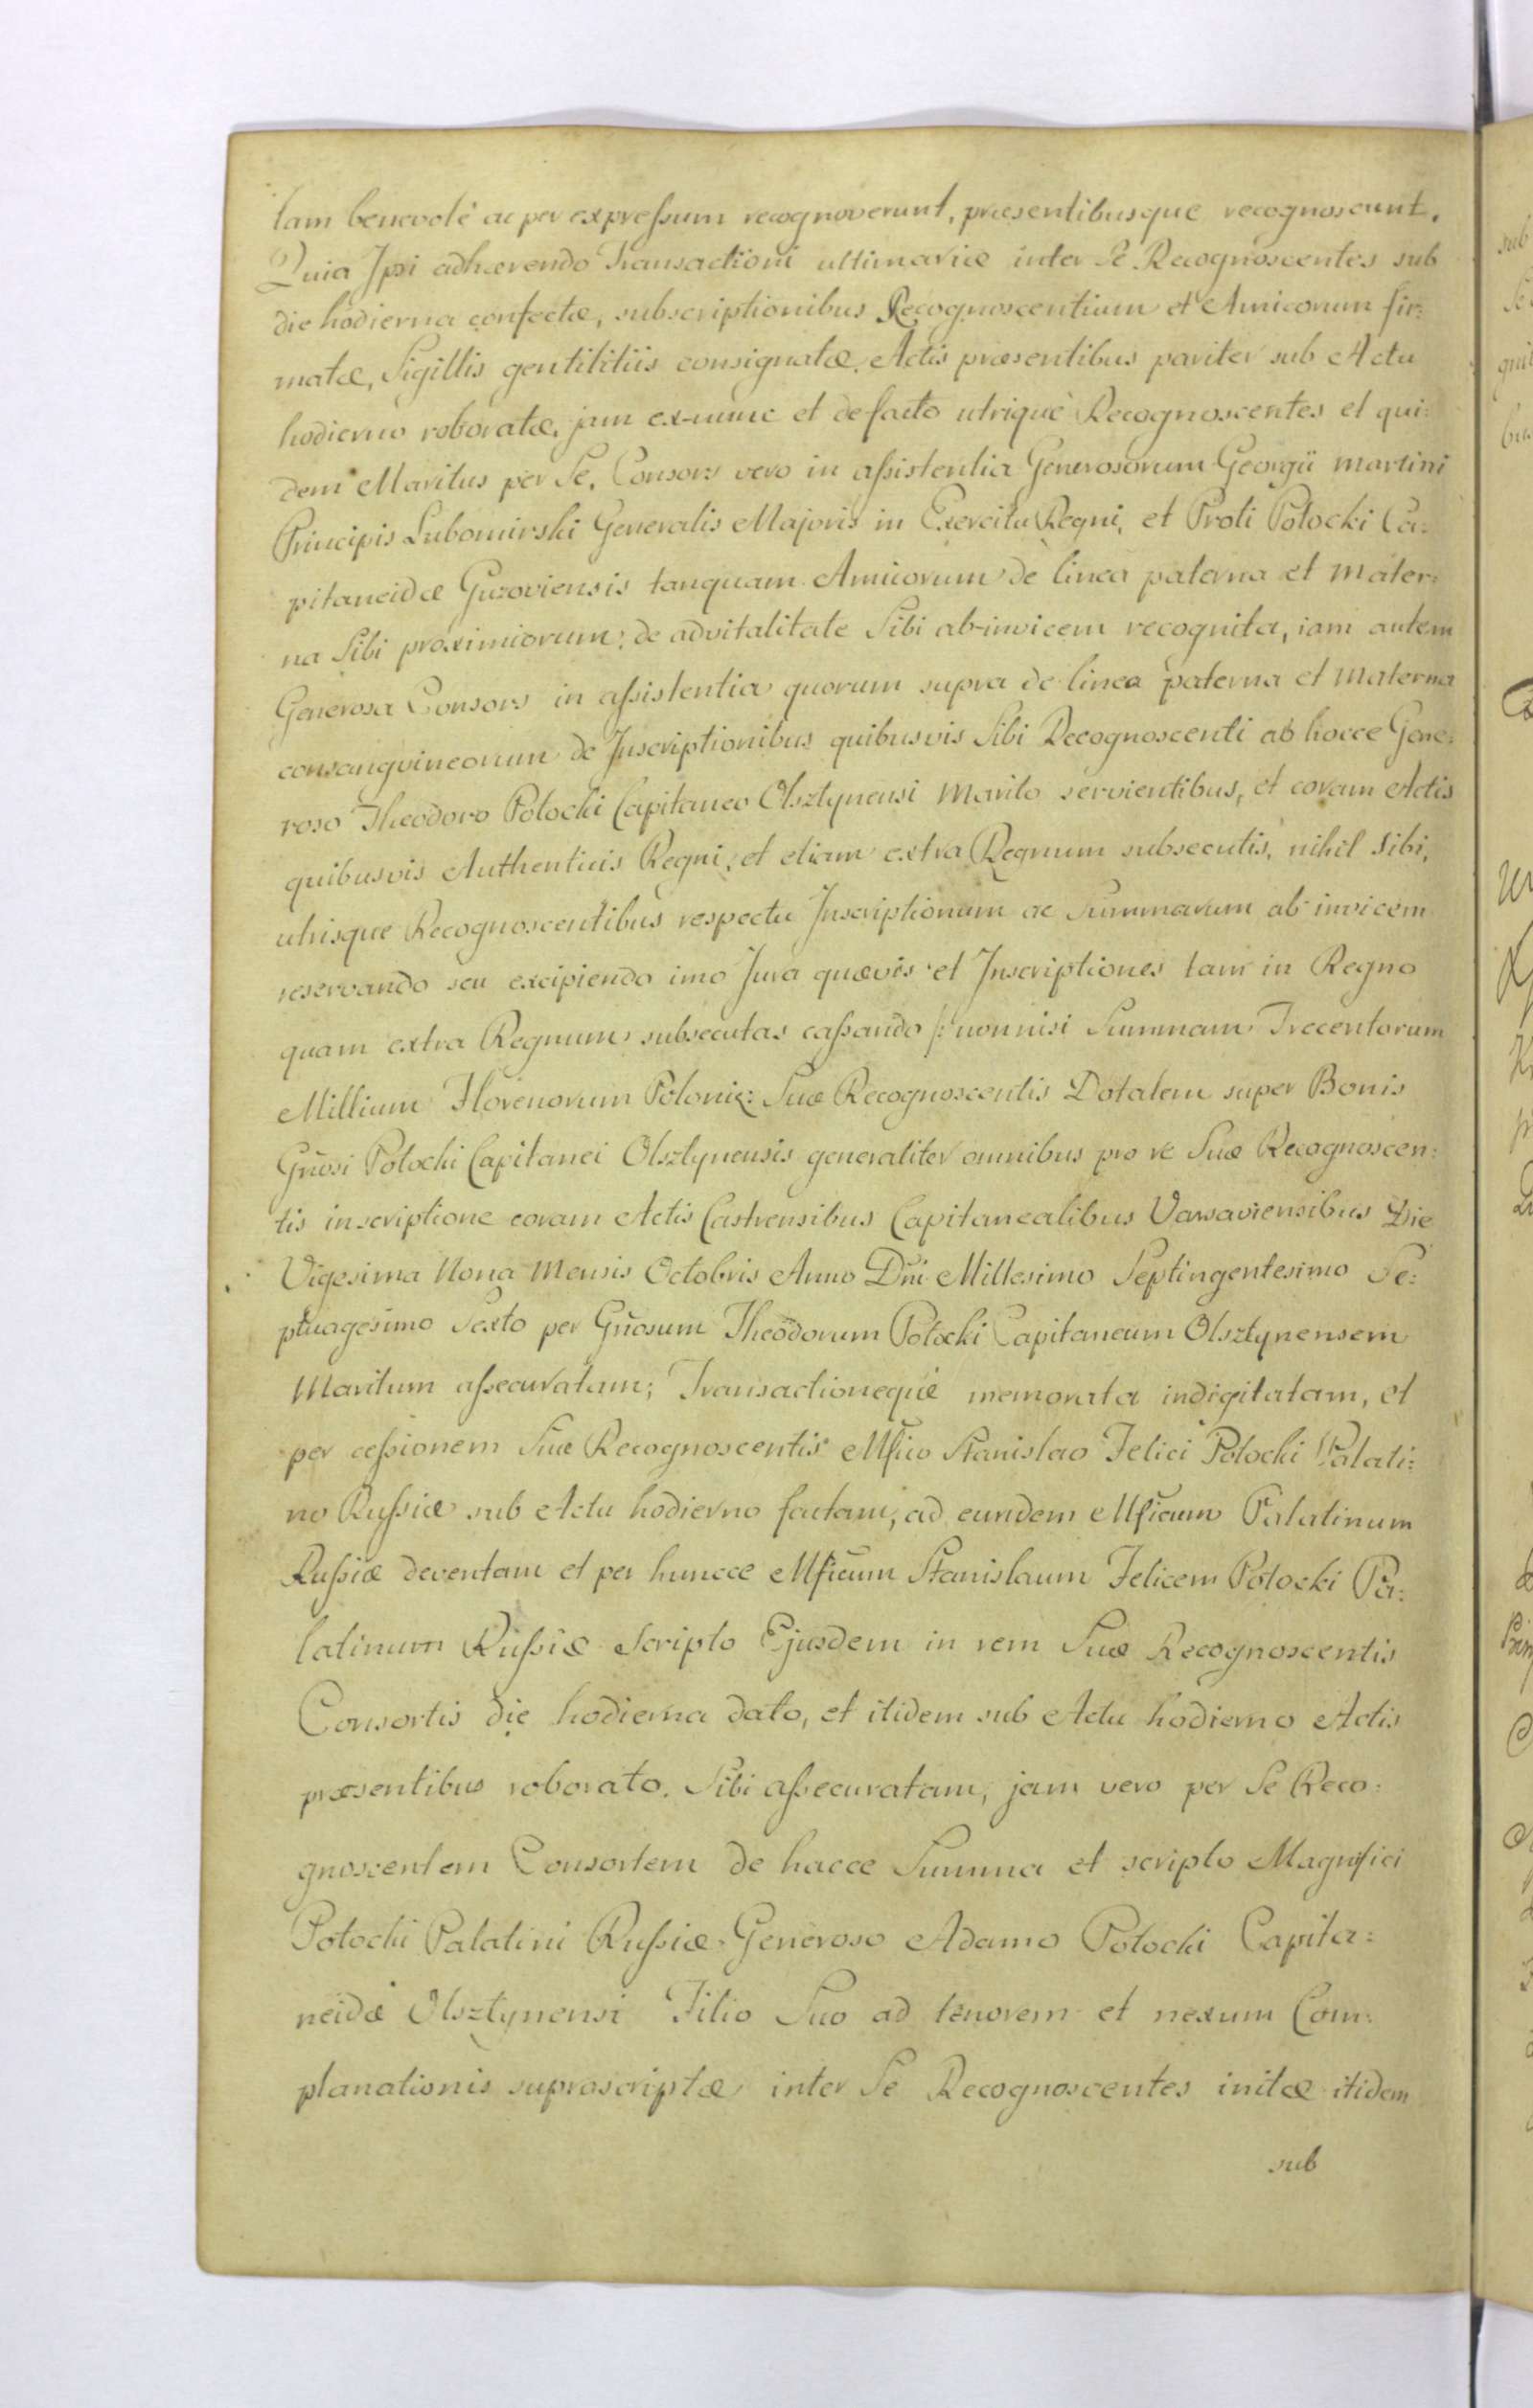 tam benevolè ac per expressum recognoverunt, præsentibusque recognoscunt.
Quia Ipsi adhærendo Transactioni ultimariæ inter Se Recognoscentes sub
die hodierna confectæ, subscriptionibus Recognoscentium et Amicorum fir:
matæ, Sigillis gentilitiis consignatæ, Actis præsentibus pariter sub Actu
hodierno roboratæ, jam ex-nunc et de facto utrique Recognoscentes et qui:
dem Maritus per Se, Consors vero in assistentia Generosorum Georgii Martini
Principis Lubomirski Generalis Majoris in Exercitu Regni, et Proti Potocki Ca:
pitaneidæ Guzoviensis tanquam Amicorum de linea paterna et mater:
na Sibi proximiorum; de advitalitate Sibi ab-invicem recognita, iam autem
Generosa Consors in assistentia quorum supra de linea paterna et materna
consangvineorum de Inscriptionibus quibusvis Sibi Recognoscenti ab hocce Gene:
roso Theodoro Potocki Capitaneo Olsztynensi Marito servientibus, et coram Actis
quibusvis Authenticis Regni, et etiam extra Regnum subsecutis, nihil sibi,
utrisque Recognoscentibus respectu Inscriptionum ac Summarum ab invicem
reservando seu excipiendo imo Jura quævis et Inscriptiones tam in Regno
quam extra Regnum subsecutas cassando /: nonnisi Summam Trecentorum
Millium Florenorum Poloniz: Suæ Recognoscentis Dotalem super Bonis
Gnosi Potocki Capitanei Olsztynensis generaliter omnibus pro re Suæ Recognoscen:
tis inscriptione coram Actis Castrensibus Capitanealibus Varsaviensibus Die
Vigesima Nona Mensis Octobris Anno Dni Millesimo Septingentesimo Se:
ptuagesimo Sexto per Gnosum Theodorum Potocki Capitaneum Olsztynensem
Maritum assecuratam; Transactioneque memorata indigitatam, et
per cessionem Suæ Recognoscentis Mfico Stanislao Felici Potocki Palati:
no Russiæ sub Actu hodierno factam, ad eundem Mficum Palatinum
Russiæ deventam et per huncce Mficum Stanislaum Felicem Potocki Pa:
latinum Russiæ Scripto Ejusdem in rem Suæ Recognoscentis
Consortis die hodierna dato, et itidem sub Actu hodierno Actis
præsentibus roborato. Sibi assecuratam, jam vero per Se Reco:
gnoscentem Consortem de hacce Summa et scripto Magnifici
Potocki Palatini Russiæ Generoso Adamo Potocki Capita:
neidæ Olsztynensi Filio Suo ad tenorem et nexum Com:
planationis suprascriptæ inter Se Recognoscentes initæ itidem
sub